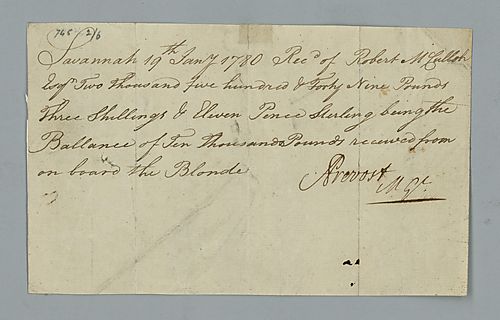 745 2/6
Savannah 19th Jany 1780 Recd of Robert McCulloh
Esqr Two Thousand five hundred & Forty Nine Pounds
Three Shillings & Eleven Pence Sterling being the
Ballance of Ten thousand Pounds received from
on board the Blonde
AProvost